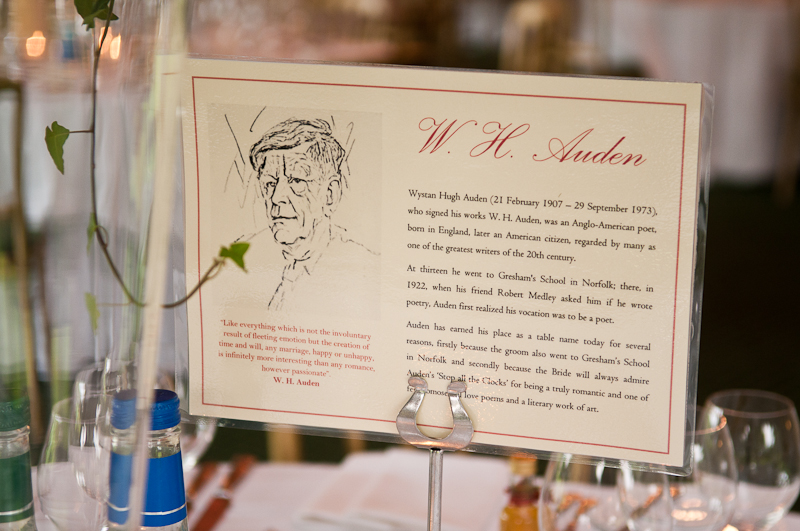 W. H. Auden
Wystan Hugh Auden (21 February 1907 – 29 September 1973),
who signed his works W. H. Auden, was an Anglo-American poet,
born in England, later an American citizen, regarded by many as
one of the greatest writers of the 20th century.
At thirteen he went to Gresham's School in Norfolk; there, in
1922, when his friend Robert Medley asked him if he wrote
poetry, Auden first realized his vocation was to be a poet.
Auden has earned his place as a table name today for several
reasons, firstly because the groom also went to Gresham's School
in Norfolk and secondly because the Bride will always admire
Auden's 'Stop all the Clocks' for being a truly romantic and one of
love poems and a literary work of art.
"Like everything which is not the involuntary
result of fleeting emotion but the creation of
time and will, any marriage, happy or unhappy,
is infinitely more interesting than any romance,
however passionate".
W. H. Auden